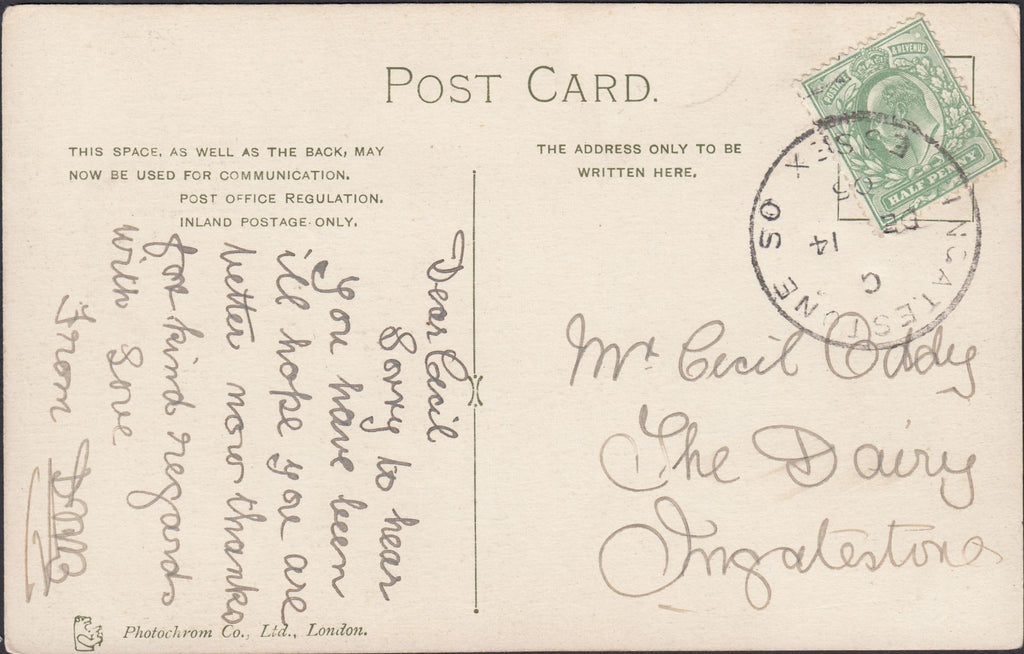 POST CARD.
THIS SPACE, AS WELL AS THE BACK, MAY
NOW BE USED FOR COMMUNICATION.
POST OFFICE REGULATION.
INLAND POSTAGE ONLY.
THE ADDRESS ONLY TO BE
WRITTEN HERE.
& REVENUE
HALF PENNY
INGATESTONE SO
ESSEX
C
14
DE
05
Dear Cecil
Sorry to hear
you have been
ill hope you are
better now thanks
for kind regards
with love
from
Mr Cecil Oddy
The Dairy
Ingatestone
Photochrom Co., Ltd., London.